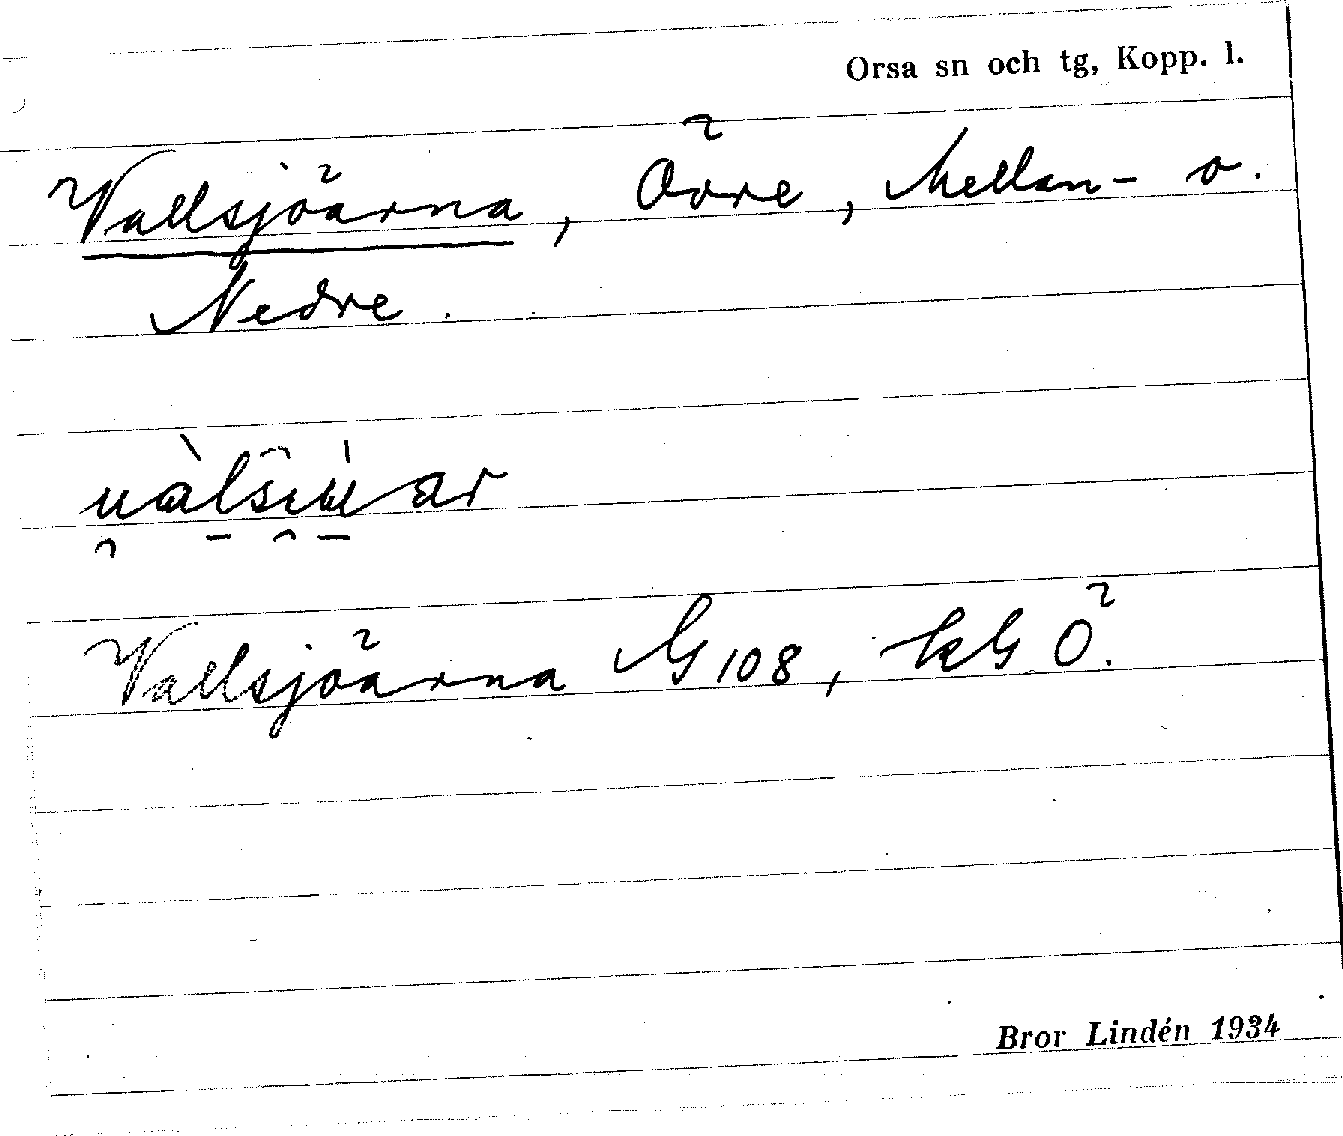 Orsa sn och tg, Kopp. l.
Vallsjöarna, Övre, Mellan- o.
Nedre.
Vallsjöarna G 108, kG Ö.
Bror Lindén 1934